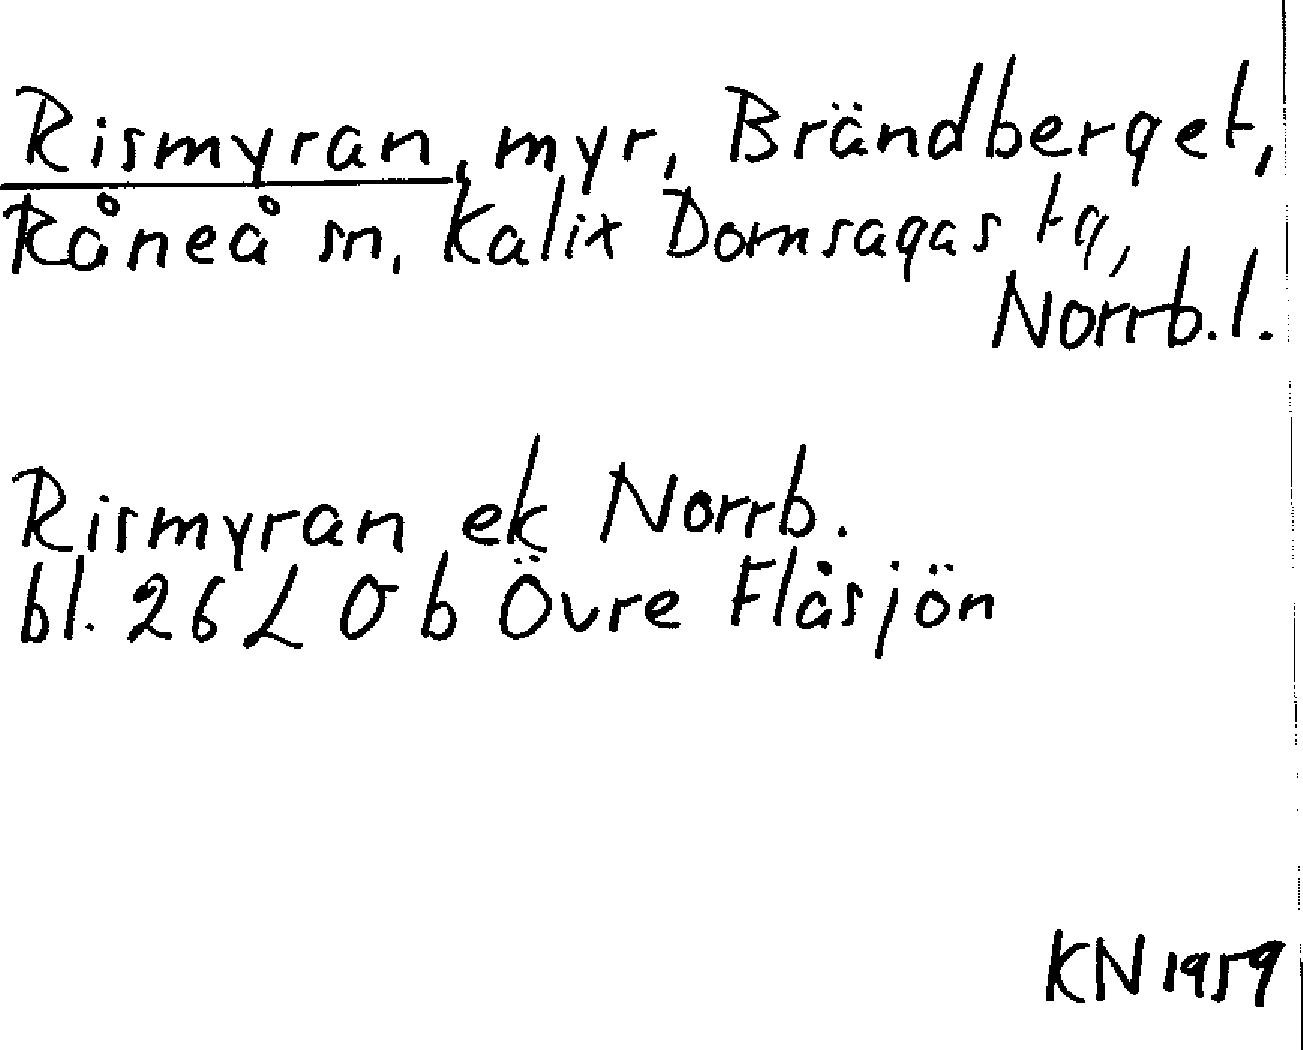 Rismyran, myr, Brändberget,
Råneå sn, Kalix Domsagas tg,
Norrb. l.
Rismyran ek Norrb.
bl. 26 L 0 b Övre Flåsjön
KN 1959